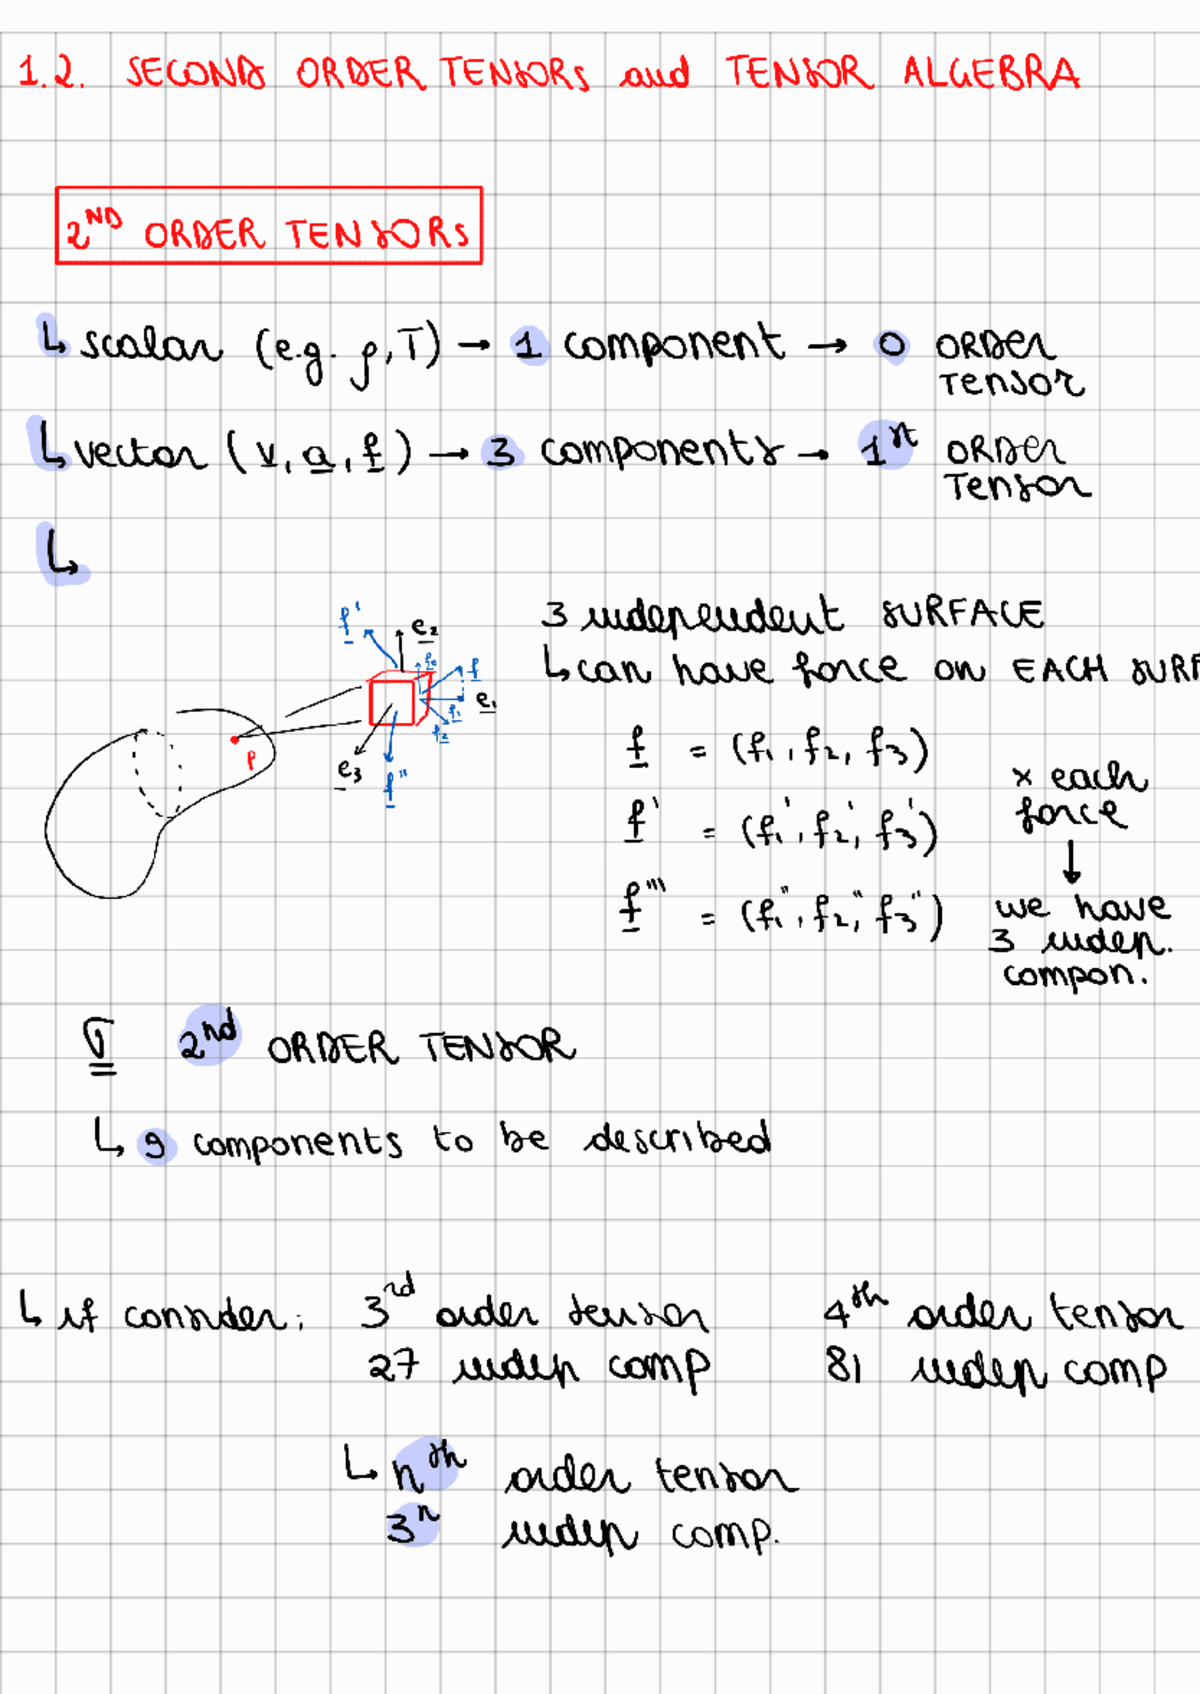 1.2. SECOND ORDER TENSORS and TENSOR ALGEBRA
2ND ORDER TENSORS
↳ scalar (e.g. ρ, T) → 1 component → 0 ORDER
TENSOR
↳ vector (v, a, f) → 3 components → 1st ORDER
TENSOR
↳
3 independent SURFACE
↳ can have force on EACH SURF
f'
e2
f2
f
e1
f1
f2
P
e3
f"
f = (f1, f2, f3)
x each
force
f' = (f1', f2', f3')
↓
f''' = (f1", f2", f3")
we have
3 indep.
compon.
σ 2nd ORDER TENSOR
↳ 9 components to be described
↳ if consider: 3rd order tensor 4th order tensor
27 indep comp 81 indep comp
↳ nth order tensor
3n indep comp.